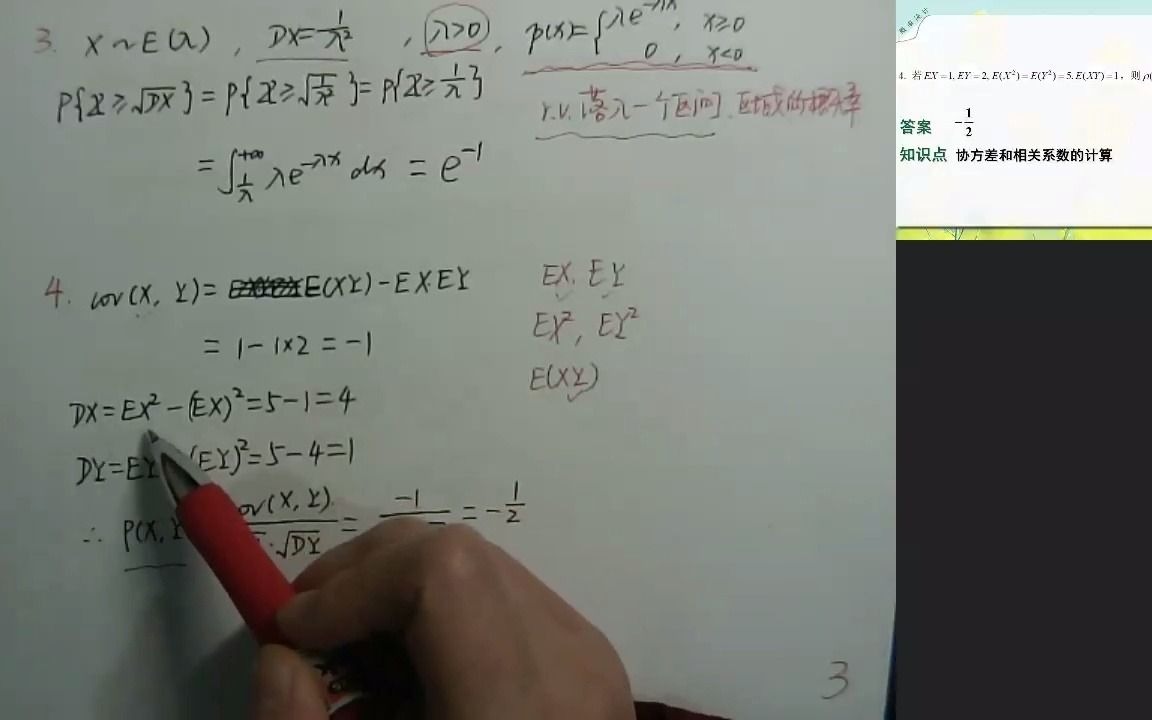 3. X~E(λ), DX=1/λ², (λ>0), p(x)={λe^{-λx}, x≥0
0, x<0
P{X≥√DX}=P{X≥√(1/λ²)}=P{X≥1/λ}
r.v.落入一个区间、区域的概率
=∫_{1/λ}^{+∞} λe^{-λx} dx = e^{-1}
4. cov(X, Y)= E(XY)-EX·EY
= 1-1×2=-1
DX=EX²-(EX)²=5-1=4
DY=EY (EY)²=5-4=1
∴ ρ(X, Y ov(X, Y) / ·√DY = -1 = -1/2
EX, EY
EX², EY²
E(XY)
3
概率统计
4. 若 EX=1, EY=2, E(X²)=E(Y²)=5, E(XY)=1, 则 ρ(
答案 -1/2
知识点 协方差和相关系数的计算